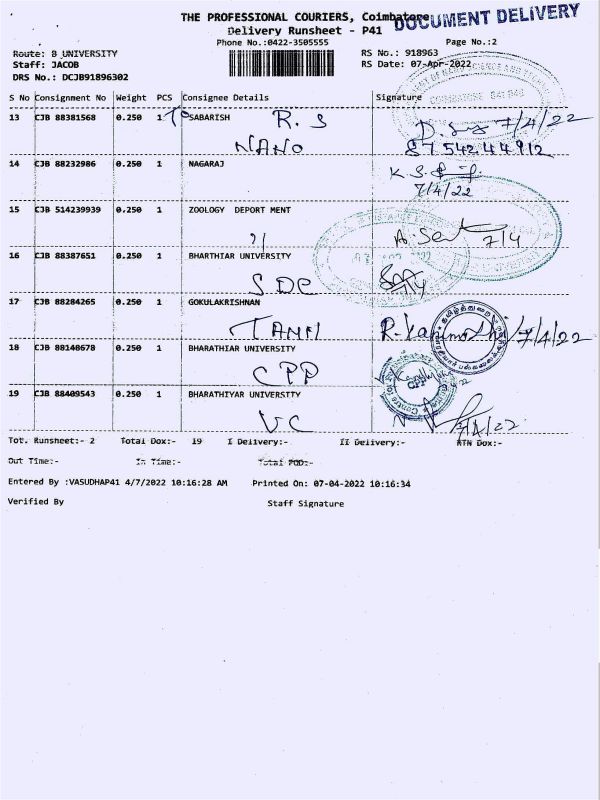 THE PROFESSIONAL COURIERS, Coimbatore
DOCUMENT DELIVERY
Delivery Runsheet - P41
Phone No.:0422-3505555
Page No.:2
Route: B_UNIVERSITY
RS No.: 918963
Staff: JACOB
RS Date: 07-Apr-2022
DRS No.: DCJB91896302
S No Consignment No Weight PCS Consignee Details Signature
13 CJB 88381568 0.250 1 SABARISH R. S 7/4/22
NANO 8754244912
14 CJB 88232986 0.250 1 NAGARAJ K.S.
7/4/22
15 CJB 514239939 0.250 1 ZOOLOGY DEPORT MENT
7/4
16 CJB 88387651 0.250 1 BHARTHIAR UNIVERSITY
SDC
17 CJB 88284265 0.250 1 GOKULAKRISHNAN
TAMIL 7/4/22
18 CJB 88148678 0.250 1 BHARATHIAR UNIVERSITY
CPP
19 CJB 88409543 0.250 1 BHARATHIYAR UNIVERSITY
VC 7/4/22
Tot. Runsheet:- 2 Total Dox:- 19 I Delivery:- II Delivery:- RTN Dox:-
Out Time:- In Time:- Total POD:-
Entered By :VASUDHAP41 4/7/2022 10:16:28 AM Printed On: 07-04-2022 10:16:34
Verified By Staff Signature